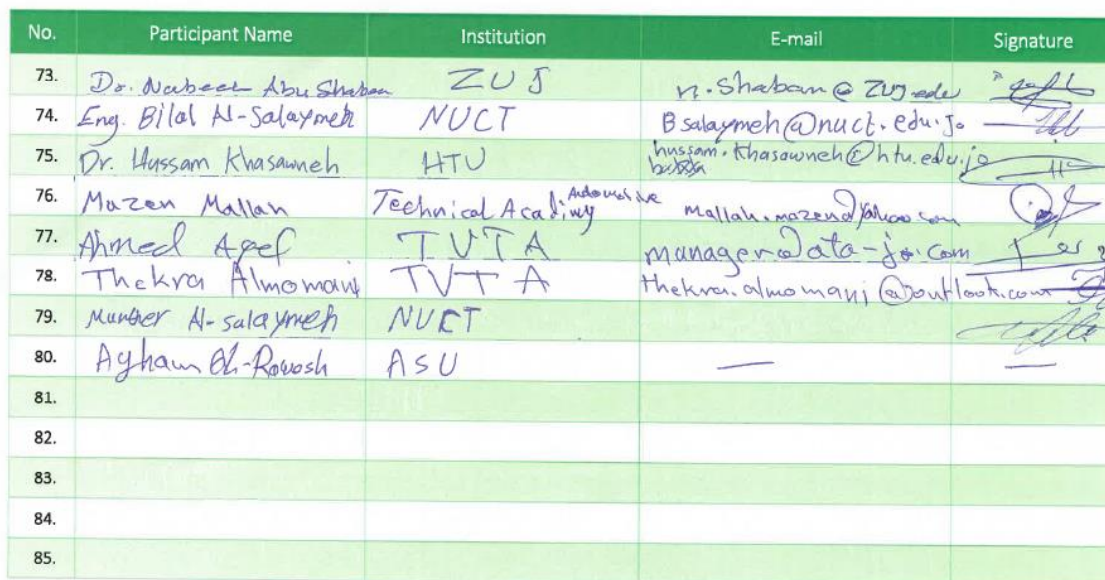 No. Participant Name Institution E-mail Signature
73. Dr. Nabeel Abu Shaban ZUJ n.shaban@zuj.edu
74. Eng. Bilal Al-Salaymeh NUCT Bsalaymeh@nuct.edu.jo
75. Dr. Hussam Khasawneh HTU hussam.khasawneh@htu.edu.jo
76. Mazen Mallah Technical Academy Automotive mallah.mazen@yahoo.com
77. Ahmed TVTA manager@ata-jo.com
78. Thekra Almomani TVTA thekra.almomani@outlook.com
79. Munther Al-salaymeh NUCT
80. Ayham ASU —  —
81.
82.
83.
84.
85.